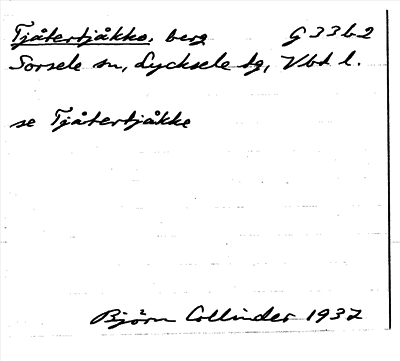 Tjåtertjåkko, berg G 33 b 2
Sorsele sn, Lycksele tg, Vbt l.
se Tjåtertjåkke
Björn Collinder 1937